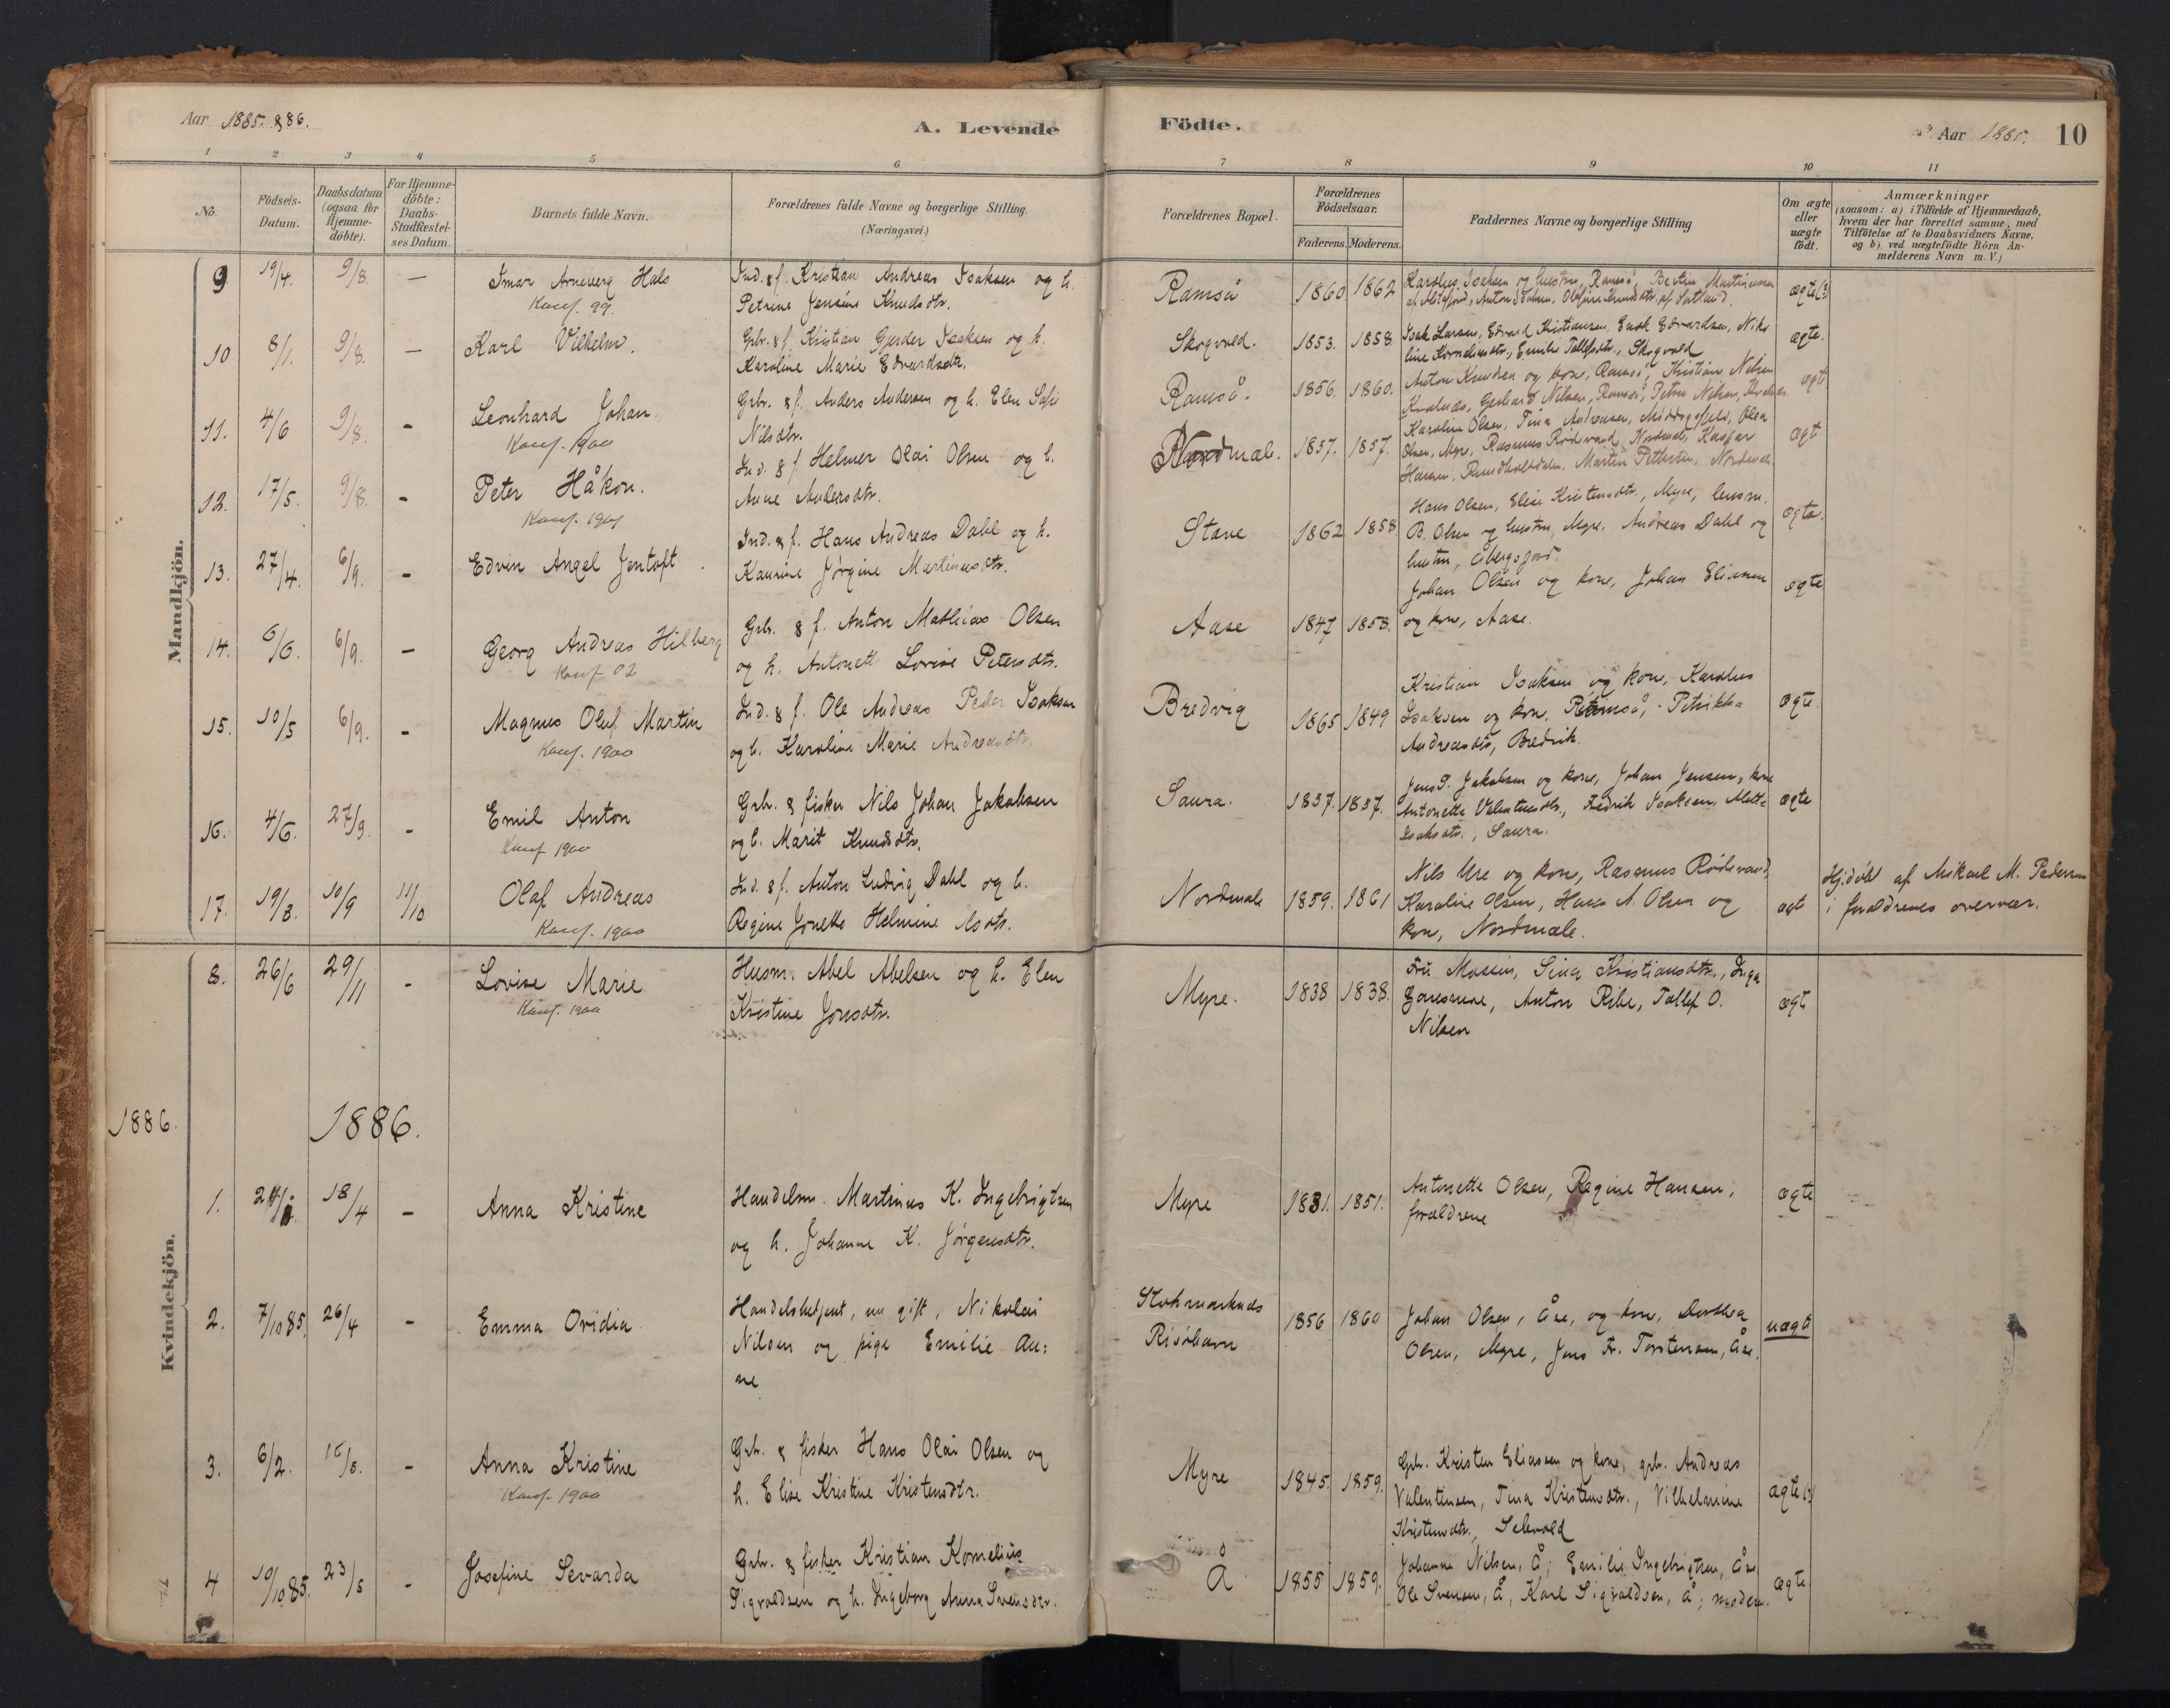 Aar 1885. & 86.
A. Levende
Födte.
Aar 1885. 10
1 2 3 4 5 6 7 8 9 10 11
No.
Födsels-Datum.
Daabsdatum (ogsaa for Hjemme-döbte).
For Hjemme-döbte: Daabs-Stadfæstel-ses Datum.
Barnets fulde Navn.
Forældrenes fulde Navne og borgerlige Stilling. (Næringsvei.)
Forældrenes Bopæl.
Forældrenes Födselsaar.
Faderens. Moderens.
Faddernes Navne og borgerlige Stilling
Om ægte eller uægte födt.
Anmærkninger
(saasom: a) i Tilfælde af Hjemmedaab,
hvem der har forrettet samme, med
Tilföielse af to Daabsvidners Navne.
og b) ved uægtefödte Börn An-
melderens Navn m. V.)
Mandkjön.
9 19/4. 9/8. — Imar Arneverg Hals
Konf. 99.
Ind. & f. Kristian Andreas Isaksen og h.
Petrine Jensine Knudsdtr.
Ramså 1860 1862
Karolius Isaksen og hustru, Ramså, Bertin Martinussen
ægte (?)
10 8/1. 9/8. — Karl Vilhelm.
Gbr. & f. Kristian Gjerder Isaksen og h.
Karoline Marie Edvardsdtr.
Skogvold. 1853. 1858.
Isak Larsen, Edvard Kristiansen, Enok Edvardsen, Niko
line Korneliusdtr., Emilie Tollefsdtr., Skogvold
ægte.
11. 4/6 9/8. - Leonhard Johan.
Konf. 1900
Gbr. & f. Anders Andersen og h. Elen Sofie
Nilsdtr.
Ramså. 1856. 1860.
Anton Knudsen og kone, Ramså, Kristian Nilsen
Kvalnæs, Gerhard Nilsen, Ramså, Petra Nilsen,
ægte
12. 17/5. 9/8. - Peter Håkon.
Konf. 1901
Ind. & f. Helmer Olai Olsen og h.
Anne Andersdtr.
Nordmæle. 1857. 1857.
Karoline Olsen, Tina Andreasen, Olea
Olsen, Myre, Rasmus Rödsvand, Nordmæle, Kaspar
Hansen, Martin Pettersen, Nordmæle
ægt
13. 27/4. 6/9. - Edvin Angel Jentoft.
Ind. & f. Hans Andreas Dahl og h.
Kaurine Jørgine Martinusdtr.
Stave 1862 1858
Hans Olsen, Elise Kristensdtr., Myre, lensm.
B. Olsen og hustru, Myre, Andreas Dahl og
hustru, Åbergsjord.
ægte.
14. 6/6. 6/9. — Georg Andreas Hilberg
Konf 02
Gbr. & f. Anton Mathias Olsen
og h. Antonette Lovise Petersdtr.
Aase 1847 1858.
Johan Olsen og kone, Johan Eliassen
og kone, Aase.
ægte
15. 10/5 6/9. - Magnus Olaf Martin
Konf. 1900
Ind. & f. Ole Andreas Peder Isaksen
og h. Karoline Marie Andreasdtr.
Bredvig 1865 1849
Kristian Isaksen og kone, Karolius
Isaksen og kone, Ramså, Petrikka
Andreasdtr, Bredvik
ægte.
16. 4/6. 27/9. - Emil Anton
Konf 1900
Gbr. & fisker Nils Johan Jakobsen
og h. Marit Knudsdtr.
Saura. 1837. 1837.
Jens P. Jakobsen og kone, Johan Jensen, kone
Antonette Valentinsdtr., Fredrik Isaksen, Mette
Isaksdtr., Saura.
ægte
17. 19/8. 10/9 11/10 Olaf Andreas
Konf. 1900
Ind. & f. Anton Ludvig Dahl og h.
Regine Jonette Helmine Olsdtr.
Nordmæle 1859. 1861
Nils Ure og kone, Rasmus Rödsvand,
Karoline Olsen, Hans A. Olsen og
kone, Nordmæle.
ægte
Hj.döbt af Mikael M. Pedersen
i forældrenes overvær.
8. 26/6 29/11 - Lovise Marie
Konf. 1900
Husm. Abel Abelsen og h. Elen
Kristine Jonsdtr.
Myre. 1838 1838.
Fru Mossin, Sina Kristiansdtr., Inga
Anton Ribe, Tollef O.
Nilsen
ægte
1886.
1886.
Kvindekjön.
1. 18/4 - Anna Kristine
Handelsm. Martinus K. Ingebrigtsen
og h. Johanne K. Jörgensdtr.
Myre 1831. 1851.
Antonette Olsen, Regine Hansen,
forældrene
ægte
2. 7/10 85. 26/4 - Emma Ovidia
Handelsbetjent, nu gift, Nikolai
Nilsen og pige Emilie An:
ne
Stokmarknæs
Risöhavn
1856 1860
Johan Olsen, Åse, og kone, Dorthea
Olsen, Myre, Jens Fr. Torstensen, Åse.
uægte
3. 6/2. 16/5. - Anna Kristine
Konf. 1900
Gbr. & fisker Hans Olai Olsen og
h. Elise Kristine Kristensdtr.
Myre 1845. 1859.
Gbr. Kristen Eliassen og kone, gbr. Andreas
Valentinsen, Tina Kristensdtr., Vilhelmine
Kristensdtr., Selvold
ægte (?)
4 10/10 85. 23/5 - Josefine Sevarda
Gbr. & fisker Kristian Kornelius
Sigvaldsen og h. Ingeborg Anna Svensdtr.
Å 1855 1859.
Johanne Nilsen, Å; Emilie Ingebrigtsen, Åse
Ole Svensen, Å, Karl Sigvaldsen, Å; moderen.
ægte